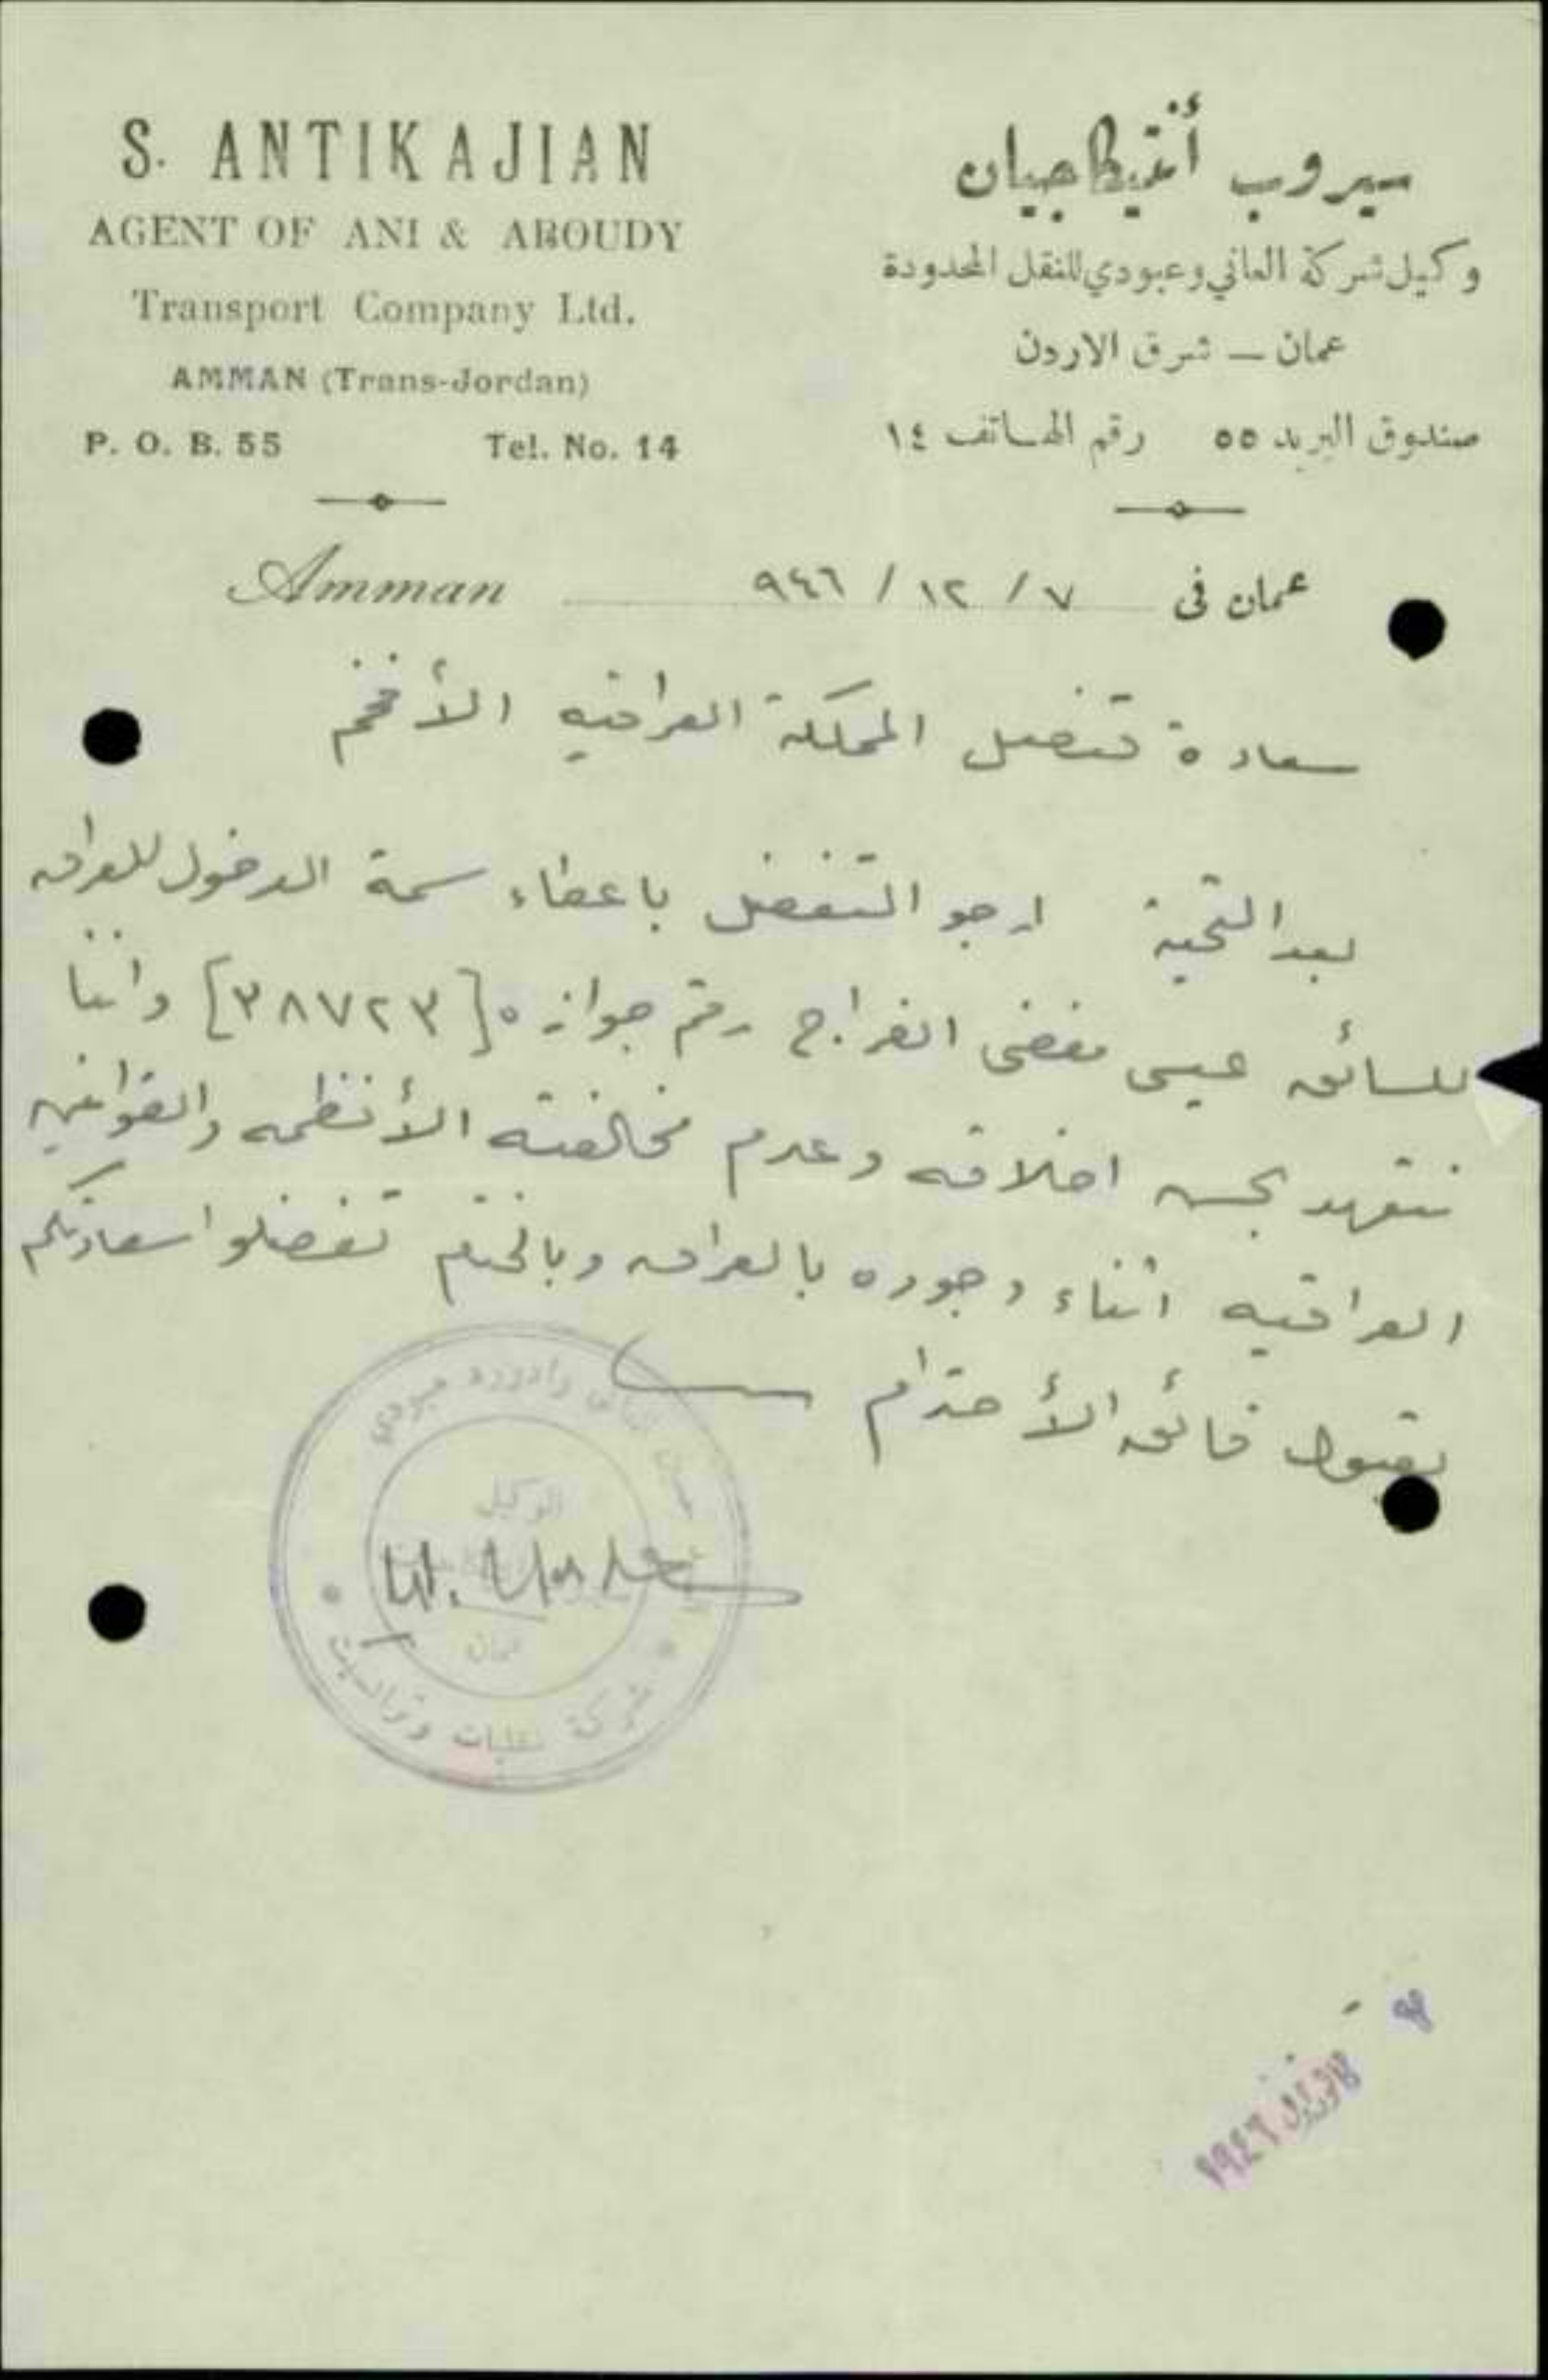 S. ANTIKAJIAN
AGENT OF ANI & ABOUDY
Transport Company Ltd.
AMMAN (Trans-Jordan)
P. O. B. 55 Tel. No. 14
سيروب أنتيكاجيان
وكيل شركة العاني وعبودي للنقل المحدودة
عمان — شرق الاردن
صندوق البريد ٥٥ رقم الهاتف ١٤
Amman
عمان فى ٧ / ١٢ / ٩٤٦
سعادة قنصل المملكة العراقيه الأفخم
بعد التحية ارجو التفضل باعطاء سمة الدخول للعراق
للسائق عيسى مفضي الفراج رقم جوازه [٣٨٧٢٣] واننا
نتعهد بحسن اخلاقه وعدم مخالفته الأنظمه والقوانين
العراقيه اثناء وجوده بالعراق وبالختم تفضلوا سعادتكم
بقبول فائق الأحترام
الوكيل
عمان
شركة نقليات وترانسيت
١٩٤٦